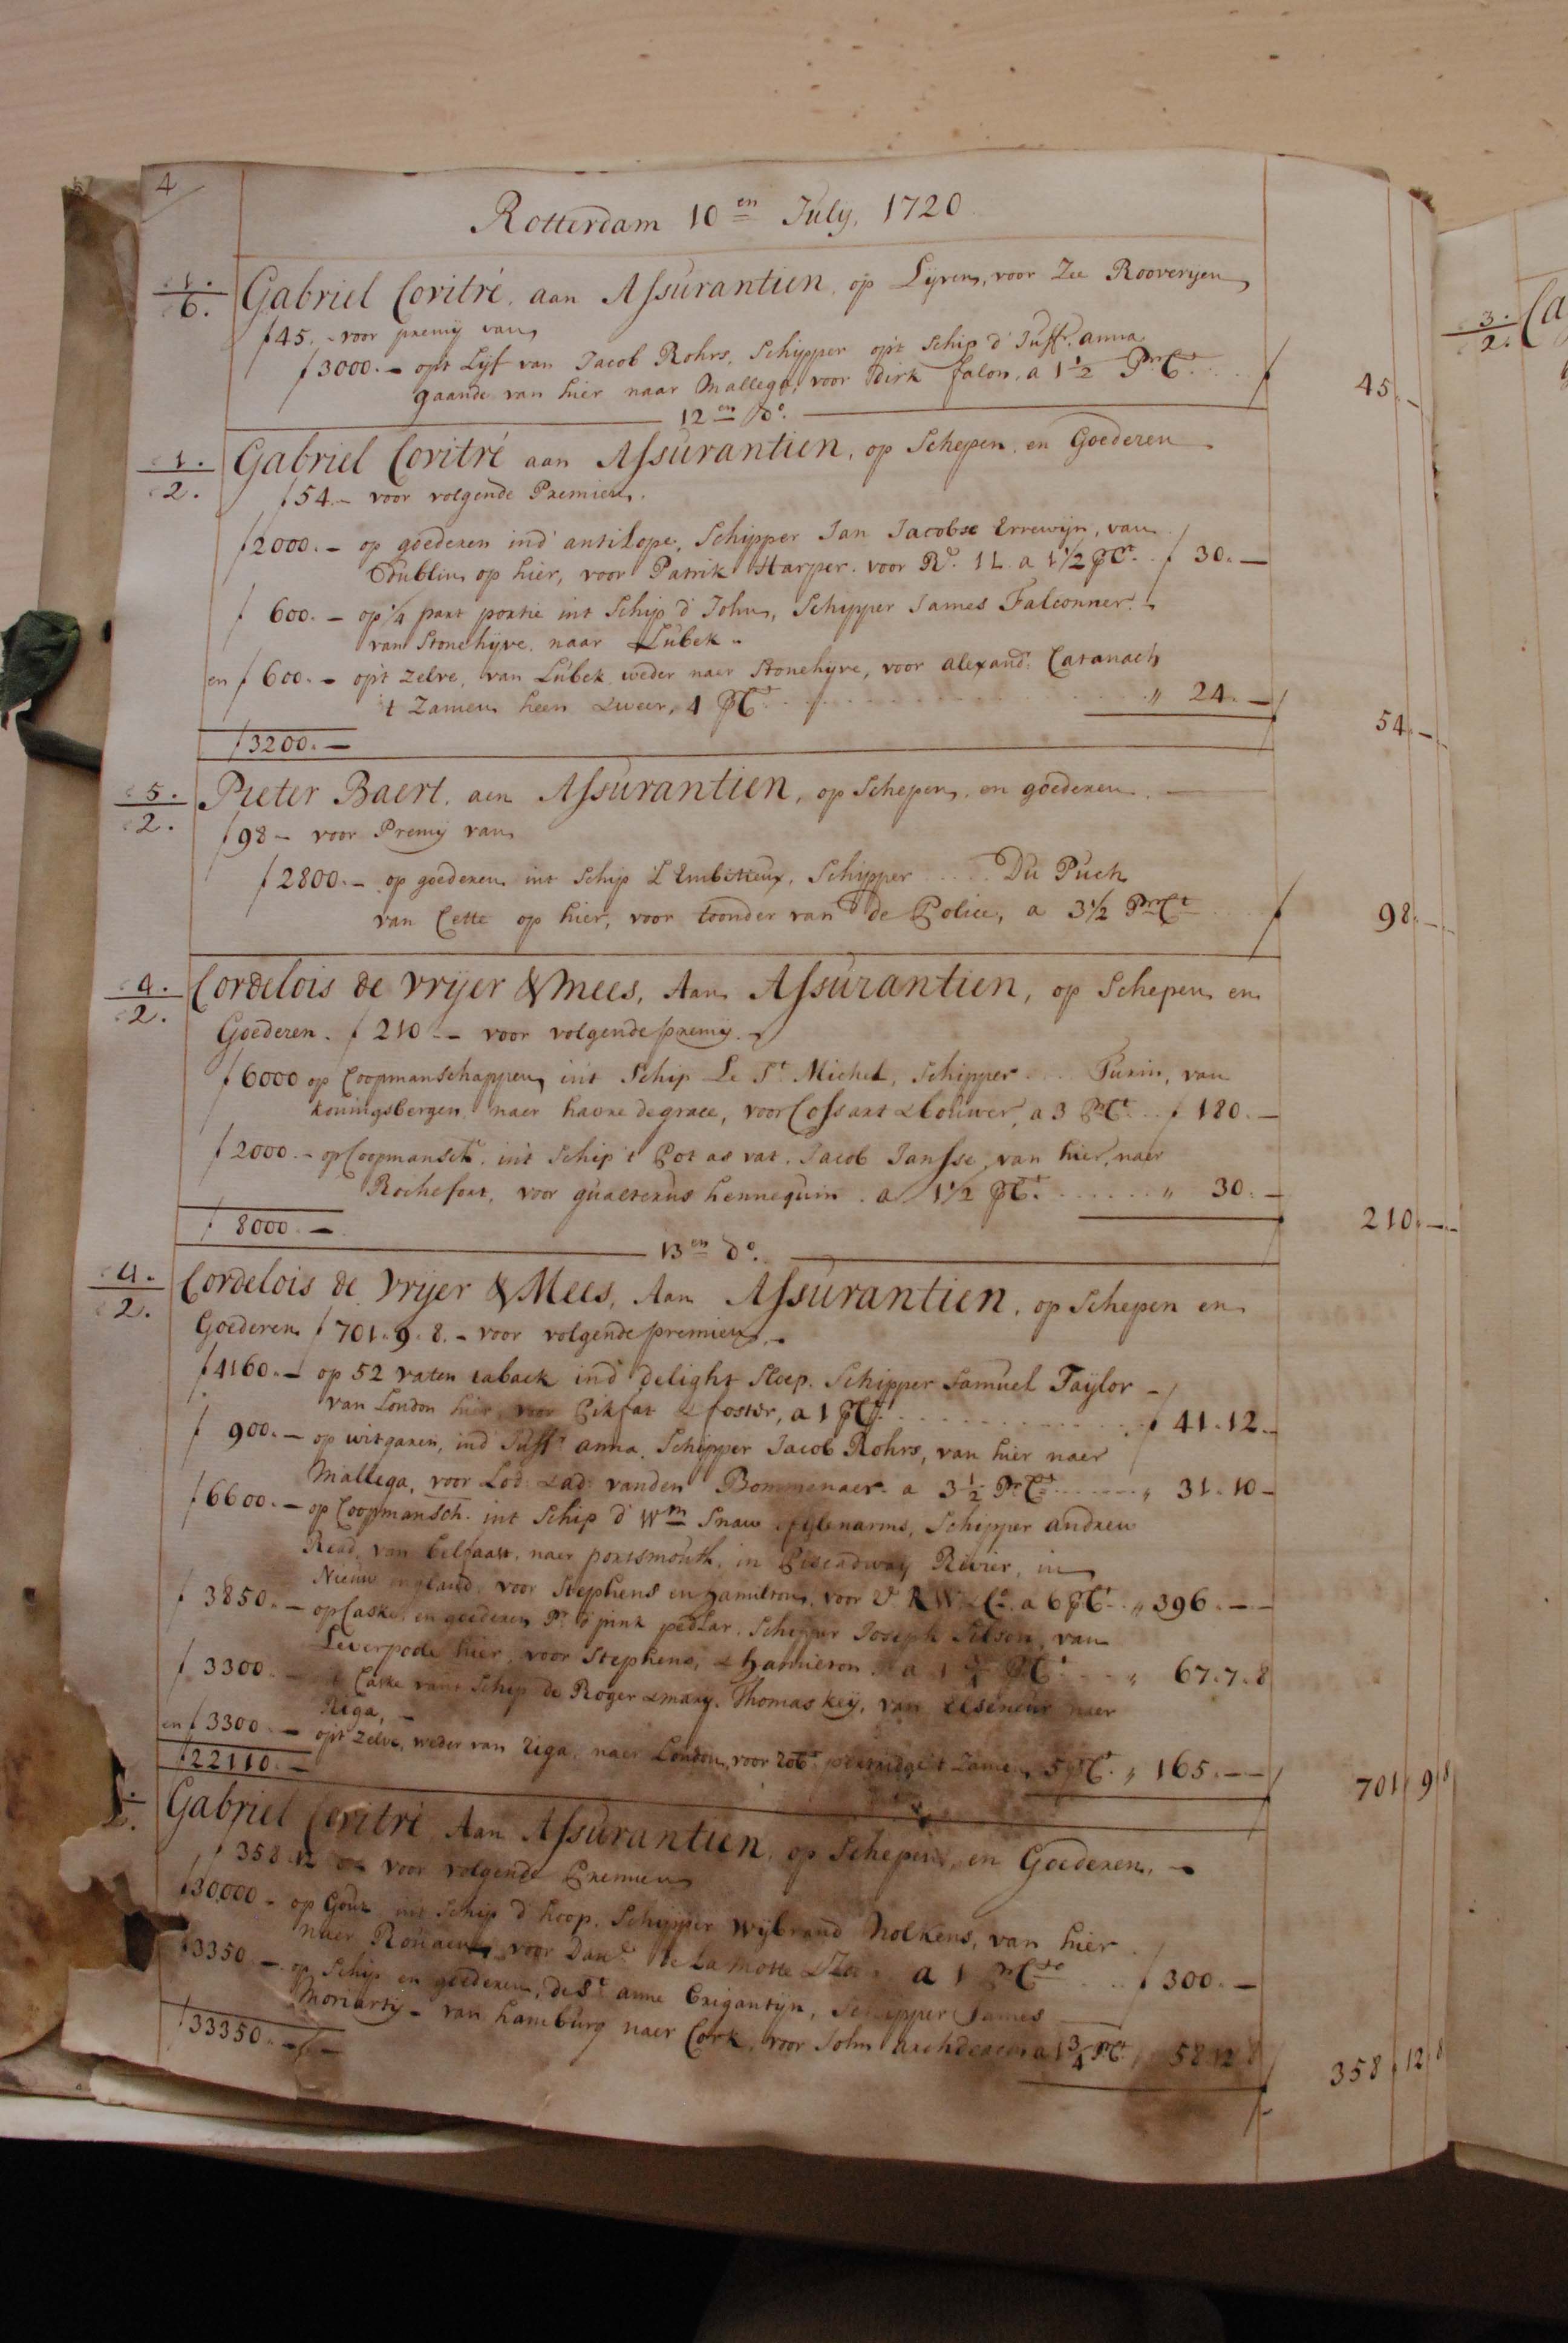 4
Rotterdam 10en July, 1720
1.
6.
Gabriel Coritré, aan Assurantien, op Lijven, voor Zee Rooverijen
f45.- voor premij van
f3000.- opt Lijf van Jacob Rohrs, Schipper opt Schip d' Juffr. anna
gaande van hier naar Mallega, voor Dirk falon, a 1½ PrCt. f 45.-
12en do.
1.
2.
Gabriel Coritré aan Assurantien, op Schepen, en Goederen
f54.- voor volgende Premien.
f2000.- op goederen ind' antilope, Schipper Jan Jacobse Errewijn, van
Dublin op hier, voor Patrik Harper. voor a 1½ PCt. f 30.-
f 600.- op ¼ part portie int Schip d' John, Schipper James Falconner
van Stonehyve, naar Lubek -
en f 600.- opt zelve, van Lubek weder naer Stonehyve, voor alexandr. Catanach
t Zamen heen & weer, 4 PCt. " 24.-
f3200.- 54.-
5.
2.
Pieter Baert, aen Assurantien, op Schepen, en goederen.
f98- voor Premij van
f2800.- op goederen int Schip L'Embitieux, Schipper ..... Du Puch
van Cette op hier, voor toonder van de Police, a 3½ PrCt f 98.-
4.
2.
Cordelois de Vrijer & Mees, Aan Assurantien, op Schepen en
Goederen. f 210.- voor volgende premij.
f6000 op Coopmanschappen int Schip Le St. Michel, Schipper ... Turin, van
koningsbergen naer havre de grace, voor Cossart & bouwer, a 3 PCt. f 180.-
f2000.- op Coopmansch. int Schip 't Pot as vat, Jacob Jansse, van hier, naer
Rochefort, voor gualterus hennequin. a 1½ PCt. " 30.-
f 8000.- 210.-
13en do.
4.
2.
Cordelois de Vrijer & Mees, Aan Assurantien, op Schepen en
Goederen f 701.9.8.- voor volgende premien.
f4160.- op 52 vaten taback ind' delight Sloep. Schipper Samuel Taylor -
van London hier, voor Pikfat & foster, a 1 PCt. f 41.12.-
f 900.- op witgaren, ind' Juffr. anna, Schipper Jacob Rohrs, van hier naer
Mallega, voor Lod: & ad: vanden Bommenaer. a 3½ PrCt " 31.10-
f6600.- op Coopmansch. int Schip d' Wm Snau, Schipper andreu
Read, van belfaast, naer portsmouth, in Piscadway Rivier, in
Nieuw england, voor Stephens en hamilton, voor a 6 PCt. " 396.-
f 3850.- op Caske, en goederen Pr. d' pink pedlar. Schipper Joseph, van
Leverpoole hier, voor Stephens, & hamilton. a PCt " 67.7.8
f 3300.- Caske vant Schip de Roger & mary, Thomas Keij, van Elseneur naer
Riga, -
en f3300.- opt zelve, weder van riga, naer London, voor robt. t Zamen 5 PCt. " 165.-
f22110.- 701 9 8
Gabriel Coritré, Aan Assurantien, op Schepen, en Goederen, -
f 358.12 voor volgende Premien
f30,000- op Gout int Schip d' hoop, Schipper Wijbrand Nolkens, van hier
naer, voor Danl. de La Motte a 1 PrCto f 300.-
f3350.- op Schip en goederen, de St. anne Brigantijn, Schipper James
Moriarty - van hamburg naer Cork, voor John archdeacon a 1¾ PrCt 58 12 8
f33350.- 358 12 8
3.
2.